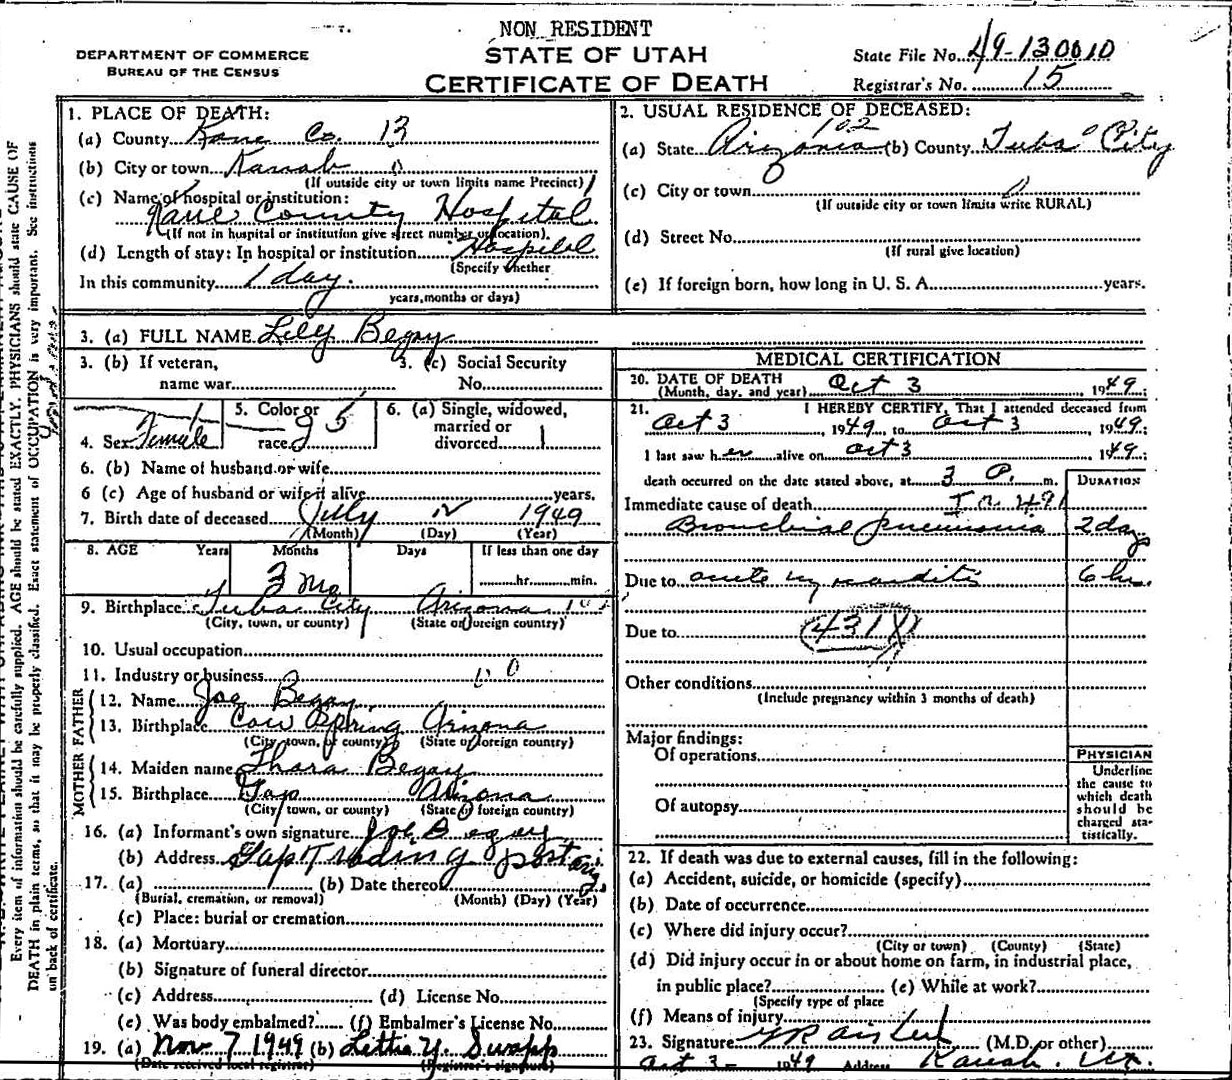 NON RESIDENT
DEPARTMENT OF COMMERCE
BUREAU OF THE CENSUS
STATE OF UTAH
CERTIFICATE OF DEATH
State File No. 49-130010
Registrar's No. 15
1. PLACE OF DEATH:
(a) County Kane Co. 13
(b) City or town Kanab 0
(If outside city or town limits name Precinct)
(c) Name of hospital or institution:
Kane County Hospital
(If not in hospital or institution give street number or location)
(d) Length of stay: In hospital or institution Hospital
(Specify whether
In this community 1 day.
years, months or days)
2. USUAL RESIDENCE OF DECEASED:
102
(a) State Arizona (b) County Tuba City
(c) City or town 0
(If outside city or town limits write RURAL)
(d) Street No.
(If rural give location)
(e) If foreign born, how long in U. S. A. years.
3. (a) FULL NAME Lily Begay
3. (b) If veteran,
name war
3. (c) Social Security
No.
4. Sex Female
5. Color or
race 95
6. (a) Single, widowed,
married or
divorced 1
6. (b) Name of husband or wife
6 (c) Age of husband or wife if alive years.
7. Birth date of deceased July 1949
(Month) (Day) (Year)
8. AGE Years Months Days If less than one day
3 mo hr. min.
9. Birthplace Tuba City Arizona
(City, town, or county) (State or foreign country)
10. Usual occupation
11. Industry or business
FATHER
12. Name Joe Begay
13. Birthplace Cow Spring Arizona
(City, town, or county) (State or foreign country)
MOTHER
14. Maiden name Thara Begay
15. Birthplace Gap Arizona
(City town, or county) (State or foreign country)
16. (a) Informant's own signature Joe Begay
(b) Address Gap Trading post Ariz
17. (a) (b) Date thereof
(Burial, cremation, or removal) (Month) (Day) (Year)
(c) Place: burial or cremation
18. (a) Mortuary
(b) Signature of funeral director
(c) Address (d) License No.
(e) Was body embalmed? (f) Embalmer's License No.
19. (a) Nov 7 1949 (b) Lettie Y. Swapp
(Date received local registrar) (Registrar's signature)
MEDICAL CERTIFICATION
20. DATE OF DEATH
(Month, day, and year) Oct 3, 1949.
21. I HEREBY CERTIFY, That I attended deceased from
Oct 3, 1949, to Oct 3, 1949:
I last saw her alive on Oct 3, 1949:
death occurred on the date stated above, at 3 P. m.
DURATION
Immediate cause of death 491
Bronchial pneumonia 2 days
Due to acute myocarditis 6 hr.
Due to 431
Other conditions
(Include pregnancy within 3 months of death)
Major findings:
Of operations
Of autopsy
PHYSICIAN
Underline
the cause to
which death
should be
charged sta-
tistically.
22. If death was due to external causes, fill in the following:
(a) Accident, suicide, or homicide (specify)
(b) Date of occurrence
(c) Where did injury occur?
(City or town) (County) (State)
(d) Did injury occur in or about home on farm, in industrial place,
in public place? (e) While at work?
(Specify type of place
(f) Means of injury
23. Signature (M.D. or other)
Oct 3 - 1949 Address Kanab. Ut.
Every item of information should be carefully supplied. AGE should be stated EXACTLY. PHYSICIANS should state CAUSE OF
DEATH in plain terms, so that it may be properly classified. Exact statement of OCCUPATION is very important. See instructions
on back of certificate.